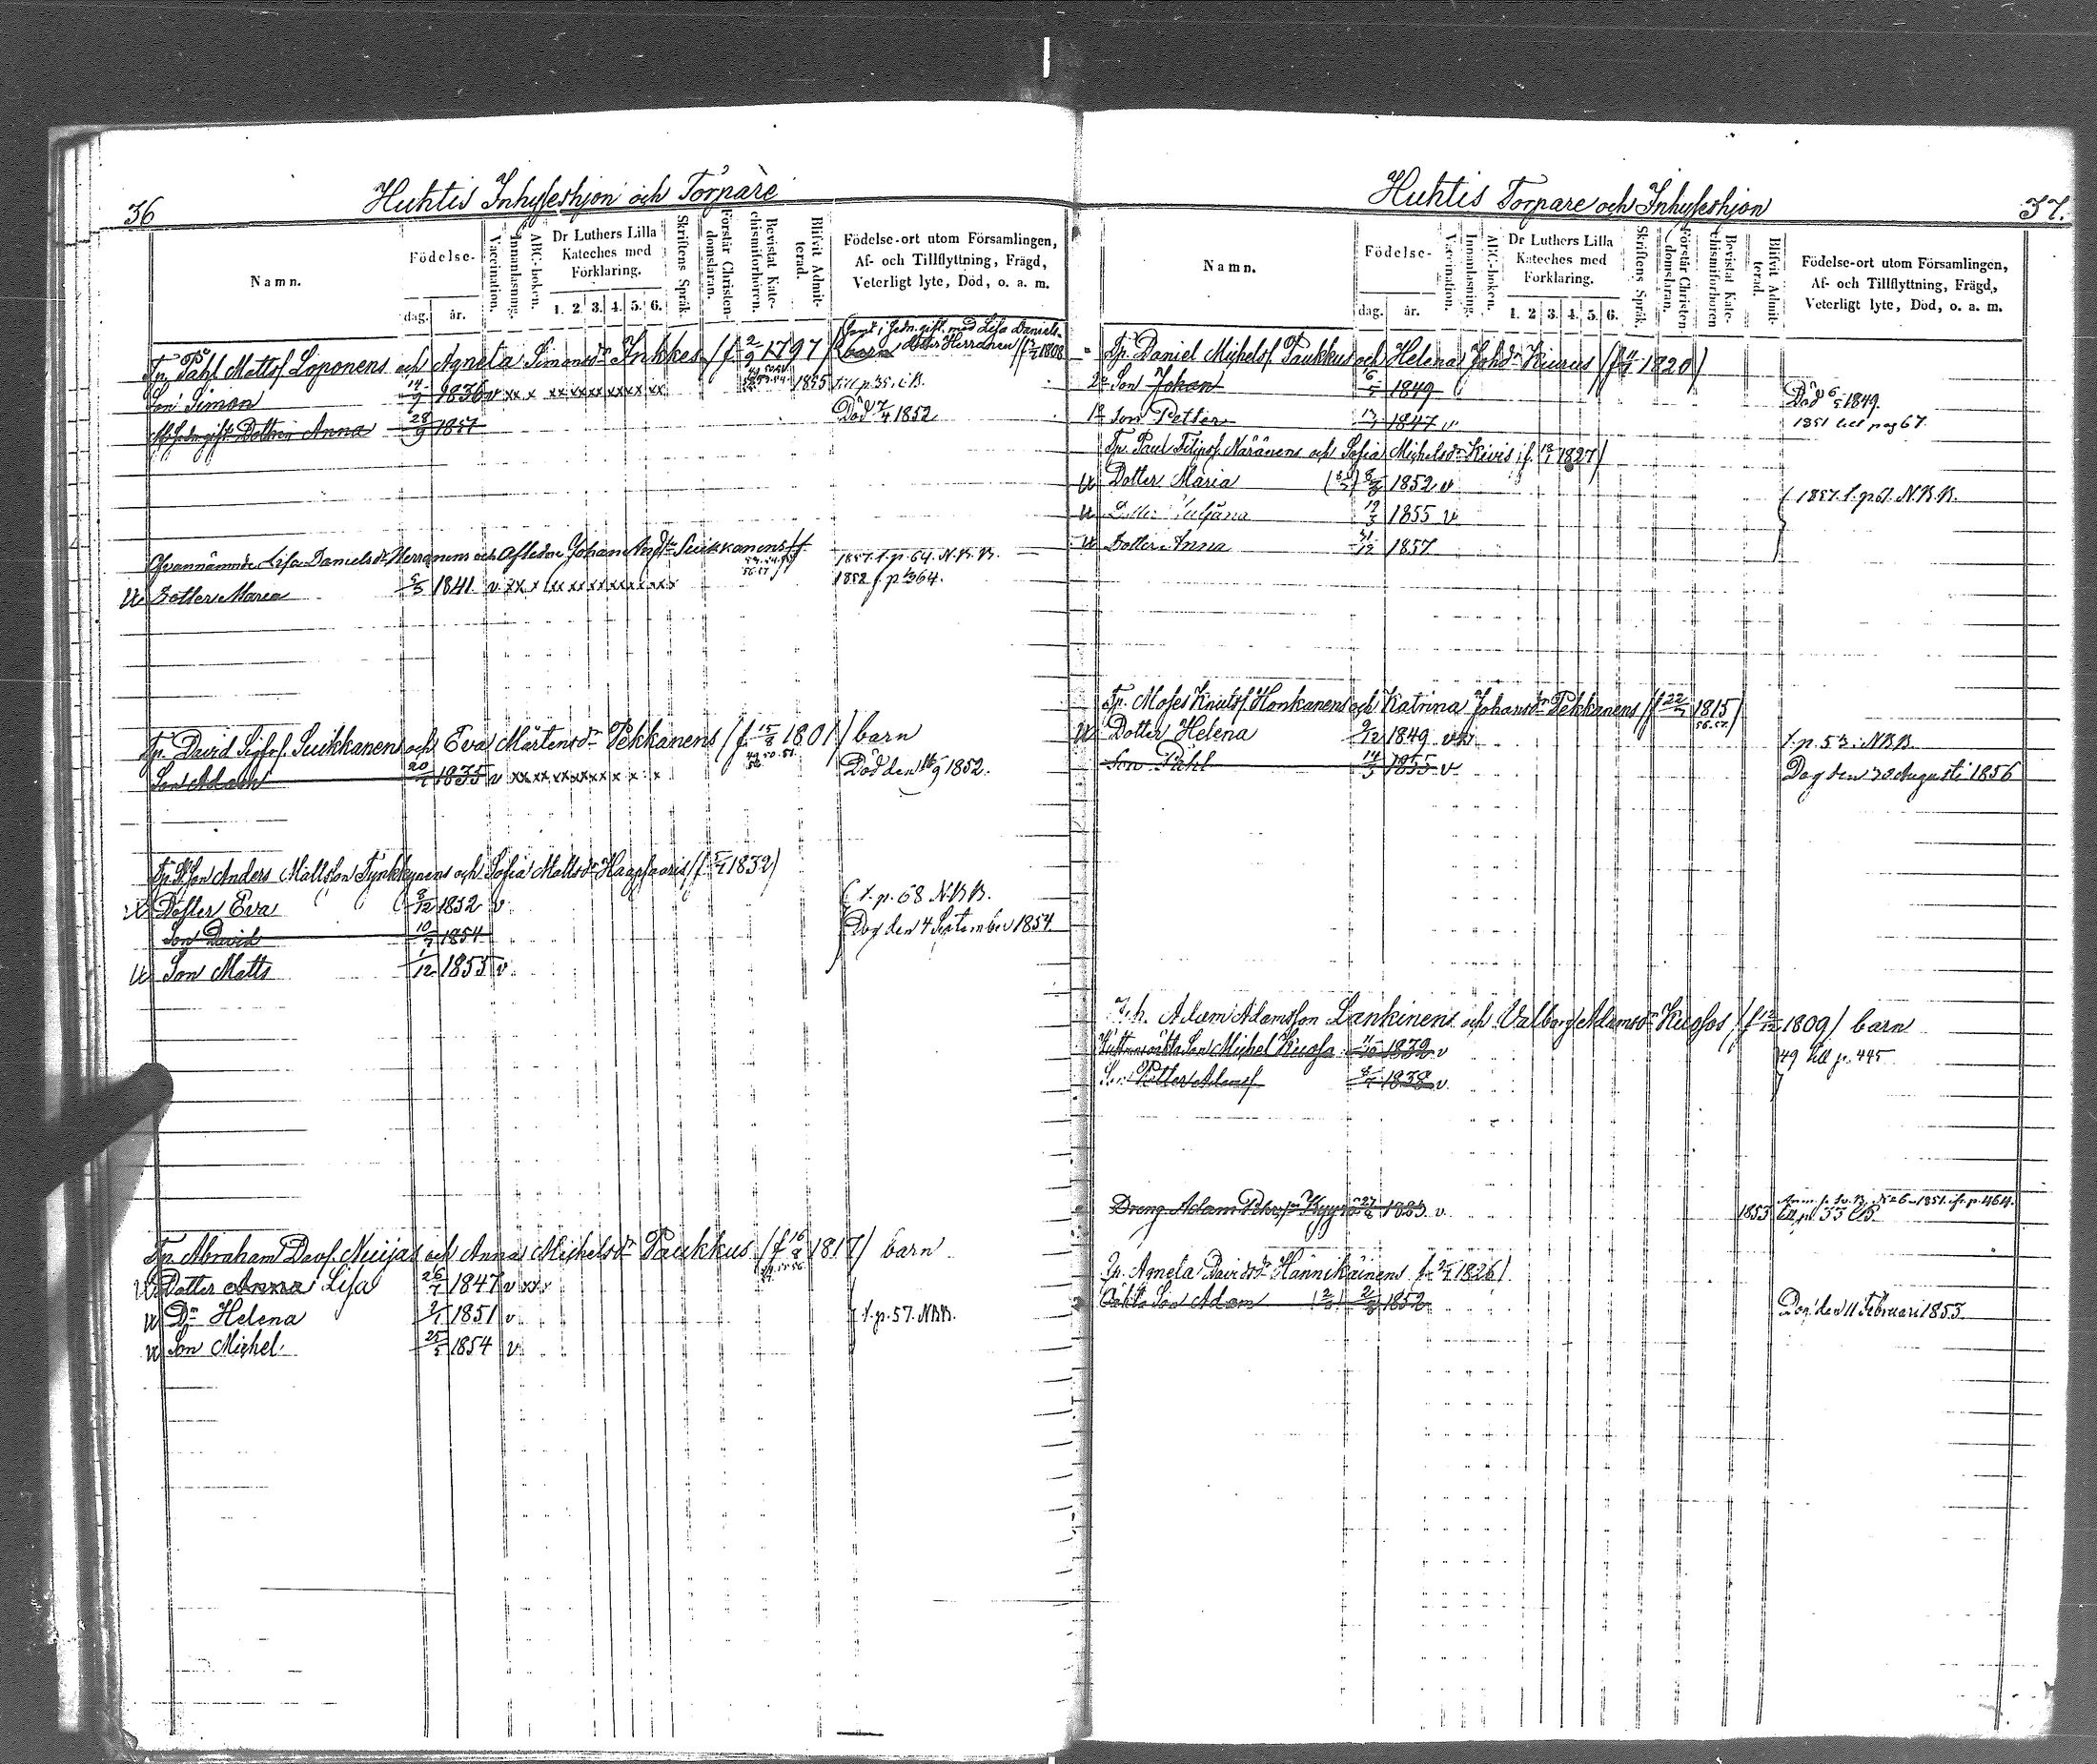 36
Huhtis Inhysheshjon och Torpare
Namn.
Födelse-
dag. år.
Vaccination.
Innanläsning.
ABC-boken.
Dr Luthers Lilla Kateches med Förklaring.
1. 2 3. 4. 5. 6.
Skriftens Språk.
Förstår Christendomsläran.
Bevistat Katechismiförhören.
Blifvit Admitterad.
Födelse-ort utom Församlingen,
Af- och Tillflyttning, Frägd,
Veterligt lyte, Död, o. a. m.
Tp. Påhl Mattsf. Loponens och Agneta Simonsdr Inkkes (f. 2/9 1797) barn
gift med Lisa Daniels-
dotter Herranen
1808
Son Simon 14/9 1836 v xx x xxxxxxxxxx xx 1855 till p. 35. i B.
gift Dottren Anna 28/9 1851 Död 7/4 1852
Ofvannämnde Lisa Danielsdr Herranens och Aflidne Johan Andsr Suikkanens 1857. f. p. 64. N.K.B.
U Dotter Maria 5/3 1841 v xx x xxxxxxxxxxx 1852 f. p. 364.
Tp. David Sigfrsf. Suikkanens och Eva Mårtensdr Pekkanens (f. 15/8 1801) barn
Son Adam 20/4 1835 v xxxx xxxxxxx x x x Död den 16/9 1852.
Tp. Son Anders Mattsson Tynkkynens och Sofia Mattsdr Haapsaaris (f. 5/4 1832)
U Dotter Eva 8/12 1852 v f. p. 68 N.B.B.
Son David 10/7 1854 Dog den 4 September 1854
U Son Matts 1/12 1855 v
Tp. Abraham Davsf. Nuijas och Anna Michelsdr Paukkus (f. 16/2 1817) barn
U Dotter Anna Lisa 26/7 1847 v xx
U Dr Helena 3/1 1851 v f. p. 57. N.B.B.
U Son Michel. 25/5 1854 v
37.
Huhtis Torpare och Inhysheshjon
Namn.
Födelse-
dag. år.
Vaccination.
Innanläsning.
ABC-boken.
Dr Luthers Lilla Kateches med Förklaring.
1. 2 3. 4. 5. 6.
Skriftens Språk.
Förstår Christendomsläran.
Bevistat Katechismiförhören
Blifvit Admitterad.
Födelse-ort utom Församlingen,
Af- och Tillflyttning, Frägd,
Veterligt lyte, Död, o. a. m.
Tp. Daniel Michelsf. Paukkus och Helena Johdr Kiurus (f. 11/7 1820)
2. Son Johan 6/5 1849 Död 6/5 1849.
1. Son Petter 1847 v 1851 till pag 67.
Tp. Paul Filipsf. Näränens och Sofia Michelsdr Kivis (f. 18/1 1827)
U Dotter Maria 1852 v 1857. f. p. 61. N.B.B.
U Dotter Juljana 1855 v
U Dotter Anna 31/12 1857
Tp. Moses Knutsf. Honkanens och Katrina Johansdr Pekkanens (f. 22/7 1815)
56. 57.
U Dotter Helena 9/12 1849 f. p. 53. N.B.B.
Son Påhl 14/3 1855 v Dog den 30 Augusti 1856
Inh. Adam Adamsson Lankinens och Valborg Adamsdr Kuosos (f. 1809) barn
oäkta Son Michel Kuosa 1832 v 49 till p. 445
Son Petter Adamsf. 8/7 1838 v
Dreng Adam Kyyrö 1833 v 1853 till p. 33 i B.
Ip. Agneta Davidsdr Hännikäinens f. 1826
Oäkta Son Adam 1852 Dog den 11 Februari 1853